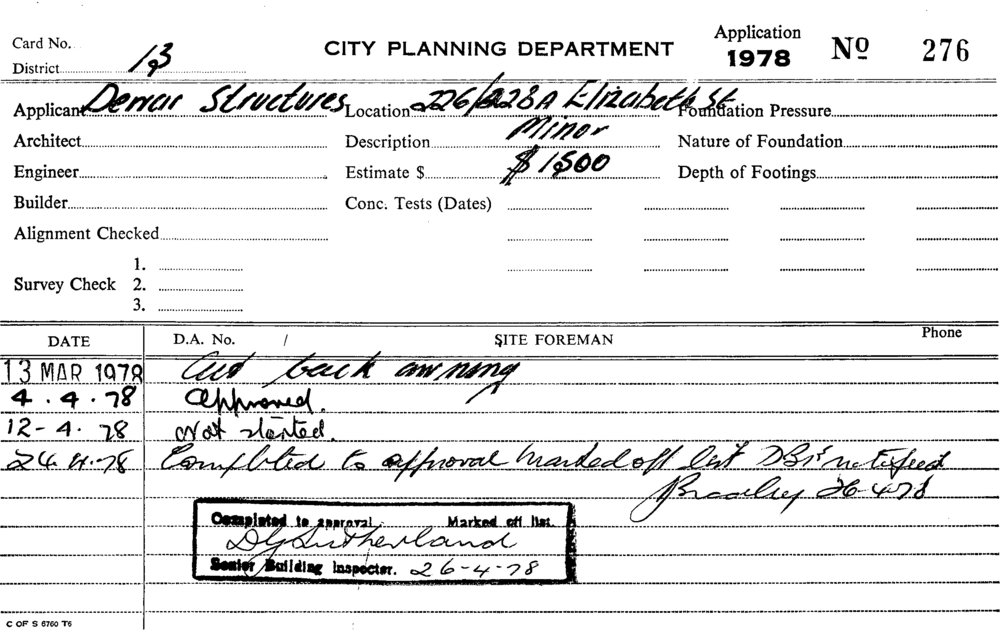 Card No.
CITY PLANNING DEPARTMENT
Application 1978 Nº 276
District 13
Applicant Demar Structures Location 226/228A Elizabeth St Foundation Pressure
Architect Description Minor Nature of Foundation
Engineer Estimate $ $1,500 Depth of Footings
Builder Conc. Tests (Dates)
Alignment Checked
1.
Survey Check 2.
3.
DATE D.A. No. / SITE FOREMAN Phone
13 MAR 1978 Cut back awning
4.4.78 Approved.
12-4.78 Not started.
24.4.78 Completed to approval Marked off list DBS notified
26-4-78
Completed to approval. Marked off list.
DG Sutherland
Senior Building Inspector. 26-4-78
C OF S 6760 T6